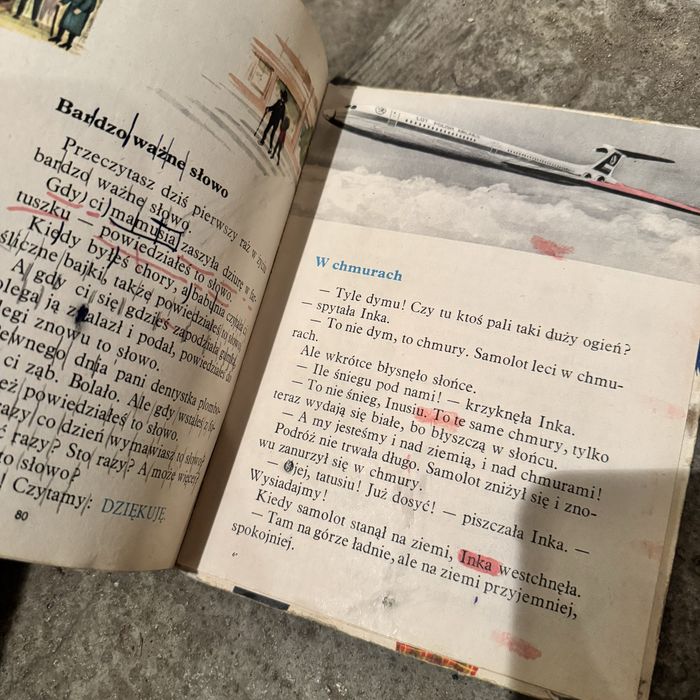 Bardzo ważne słowo
Przeczytasz dziś pierwszy raz w życiu
bardzo ważne słowo.
Gdy ci mamusia zaszyła dziurę w far-
tuszku — powiedziałeś to słowo.
Kiedy byłeś chory, a babunia czytała ci
śliczne bajki, także powiedziałeś to słowo.
A gdy ci się gdzieś zapodziała gumka,
olega ją znalazł i podał, powiedziałeś do
legi znowu to słowo.
ewnego dnia pani dentystka plombo-
ci ząb. Bolało. Ale gdy wstałeś z fo-
eż powiedziałeś to słowo.
razy co dzień wymawiasz to słowo?
ć razy? Sto razy? A może więcej?
to słowo?
! Czytamy: DZIĘKUJĘ.
80
LOT POLISH AIRLINES
W chmurach
— Tyle dymu! Czy tu ktoś pali taki duży ogień?
— spytała Inka.
— To nie dym, to chmury. Samolot leci w chmu-
rach.
Ale wkrótce błysnęło słońce.
— Ile śniegu pod nami! — krzyknęła Inka.
— To nie śnieg, Inusiu. To te same chmury, tylko
teraz wydają się białe, bo błyszczą w słońcu.
— A my jesteśmy i nad ziemią, i nad chmurami!
Podróż nie trwała długo. Samolot zniżył się i zno-
wu zanurzył się w chmury.
— Ojej, tatusiu! Już dosyć! — piszczała Inka. —
Wysiadajmy!
Kiedy samolot stanął na ziemi, Inka westchnęła.
— Tam na górze ładnie, ale na ziemi przyjemniej,
spokojniej.